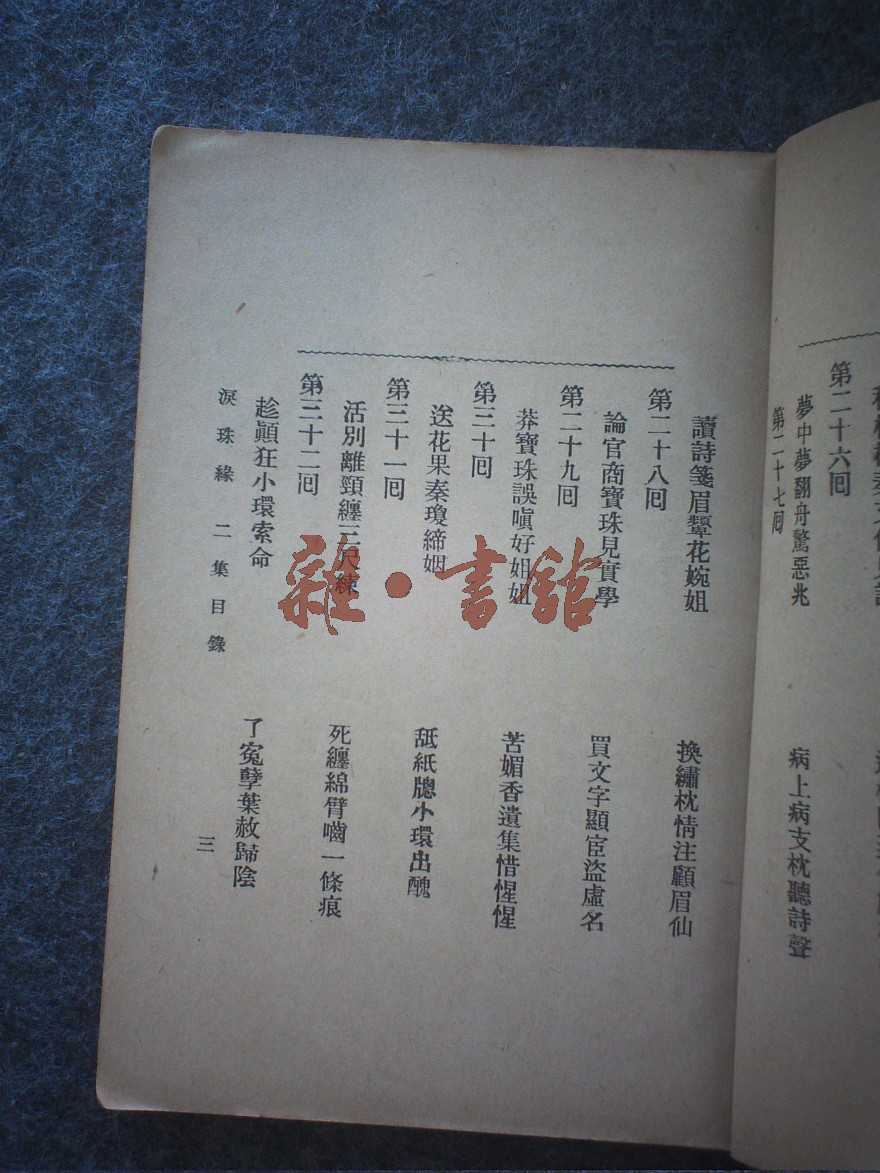 第二十六囘
夢中夢翻舟驚惡兆　病上病支枕聽詩聲
第二十七囘
讀詩箋眉顰花婉姐　換繡枕情注顧眉仙
第二十八囘
論官商寶珠見實學　買文字顯宦盜虛名
第二十九囘
莽寶珠誤嗔好姐姐　苦媚香遺集惜惺惺
第三十囘
送花果秦瓊締姻　舐紙牕小環出醜
第三十一囘
活別離頸纏三尺練　死纏綿臂嚙一條痕
第三十二囘
趁顚狂小環索命　了寃孽葉赦歸陰
淚珠緣二集目錄　三
雜·書館